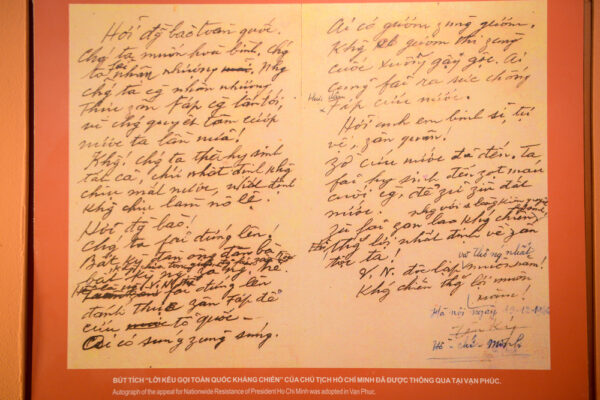 Hỡi đg bào toàn quốc.
Chg ta muốn hoà bình. Chg
ta fải nhân nhượng. Nhg
chg ta cg nhân nhượng,
thực zân Fáp cg lấn tới,
vì chg quyết tâm cướp
nước ta lần nữa!
Khg! chg ta thà hy sinh
tất cả, chứ nhất định khg
chịu mất nước, nhất định
khg chịu làm nô lệ.
Hỡi đg bào!
Chg ta fải đứng lên!
Bất kỳ đàn ông đàn bà
fải đứng lên
đánh thực zân Fáp để
cứu tổ quốc –
Ai có súng zùng súng.
Ai có gươm zùng gươm.
Khg có gươm thì zùng
cuốc xuổng gậy gộc. Ai
cũng fải ra sức chống
Fáp cứu nước.
Hỡi anh em binh sĩ, tự
vệ, zân quân!
Zờ cứu nước đã đến. Ta
fải hy sinh đến zọt máu
cuối cg, để zữ zìn đất
nước.
Zù fải zan lao khg chiến,
thắng lợi nhất định về zân
tộc ta!
V.N. độc lập và thống nhất muôn năm!
Khg chiến thg lợi muôn
năm!
Hà nội ngày 19-12-1946
Hồ - chí - Minh
BÚT TÍCH "LỜI KÊU GỌI TOÀN QUỐC KHÁNG CHIẾN" CỦA CHỦ TỊCH HỒ CHÍ MINH ĐÃ ĐƯỢC THÔNG QUA TẠI VẠN PHÚC.
Autograph of the appeal for Nationwide Resistance of President Ho Chi Minh was adopted in Van Phuc.